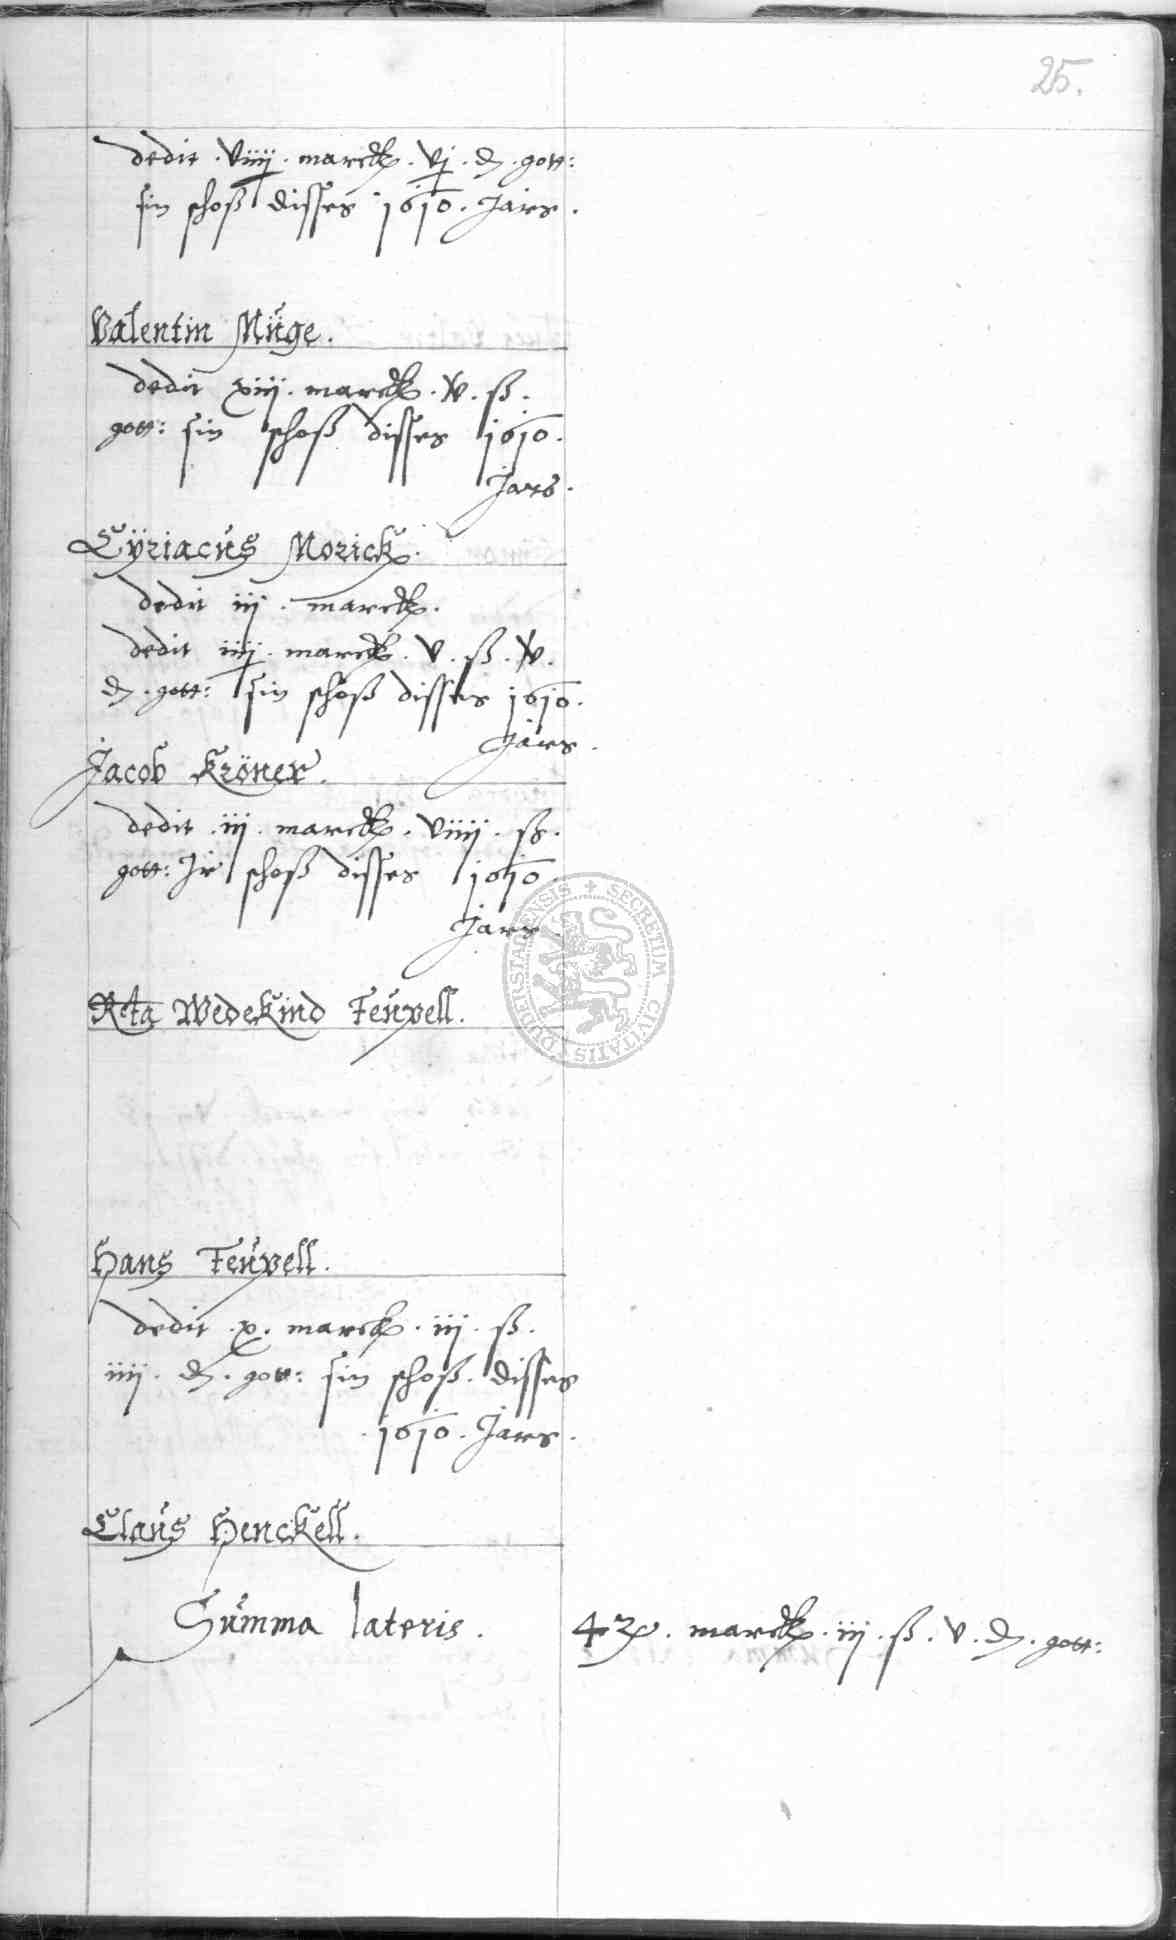 25.
dedit . viiij . marck . vj . d . gott:
sin schoß disses 1610 . Jars .
Valentin Müge .
dedit xiij . marck . v . ß .
gott: sin schoß disses 1610 .
Jars .
Cÿriacus Morick .
dedit iij . marck .
dedit iiij . marck . v . ß . v .
d . gott: sin schoß disses 1610 .
Jars .
Jacob Kröner .
dedit . iij . marck . viiij . ß .
gott: Jr schoß disses 1610 .
Jars .
Rcta Wedekind Teuvell .
Hans Teuvell .
dedit . x . marck . iij . ß .
iiij . d . gott: sin schoß . disses
. 1610 . Jars .
Claus Henckell .
Summa lateris . 42 . marck . iij . ß . v . d . gott:
+ SECRETUM CIVITATIS DUDERSTADENSIS